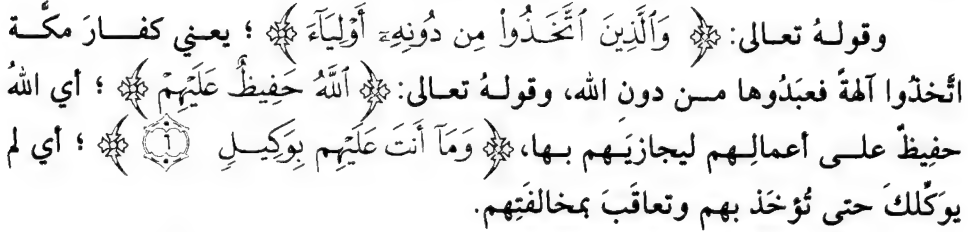 وقولهُ تعالى: ﴿ وَٱلَّذِينَ ٱتَّخَذُوا۟ مِن دُونِهِۦٓ أَوْلِيَآءَ ﴾ ؛ يعني كفارَ مكَّة
اتَّخذُوا آلهةً فعبَدُوها من دونِ الله، وقولهُ تعالى: ﴿ ٱللَّهُ حَفِيظٌ عَلَيْهِمْ ﴾ ؛ أي اللهُ
حفِيظٌ على أعمالِهم ليجازيَهم بها، ﴿ وَمَآ أَنتَ عَلَيْهِم بِوَكِيلٍ ٦ ﴾ ؛ أي لم
يوَكِّلكَ حتى تُؤخَذ بهم وتعاقَبَ بمخالفَتِهم.